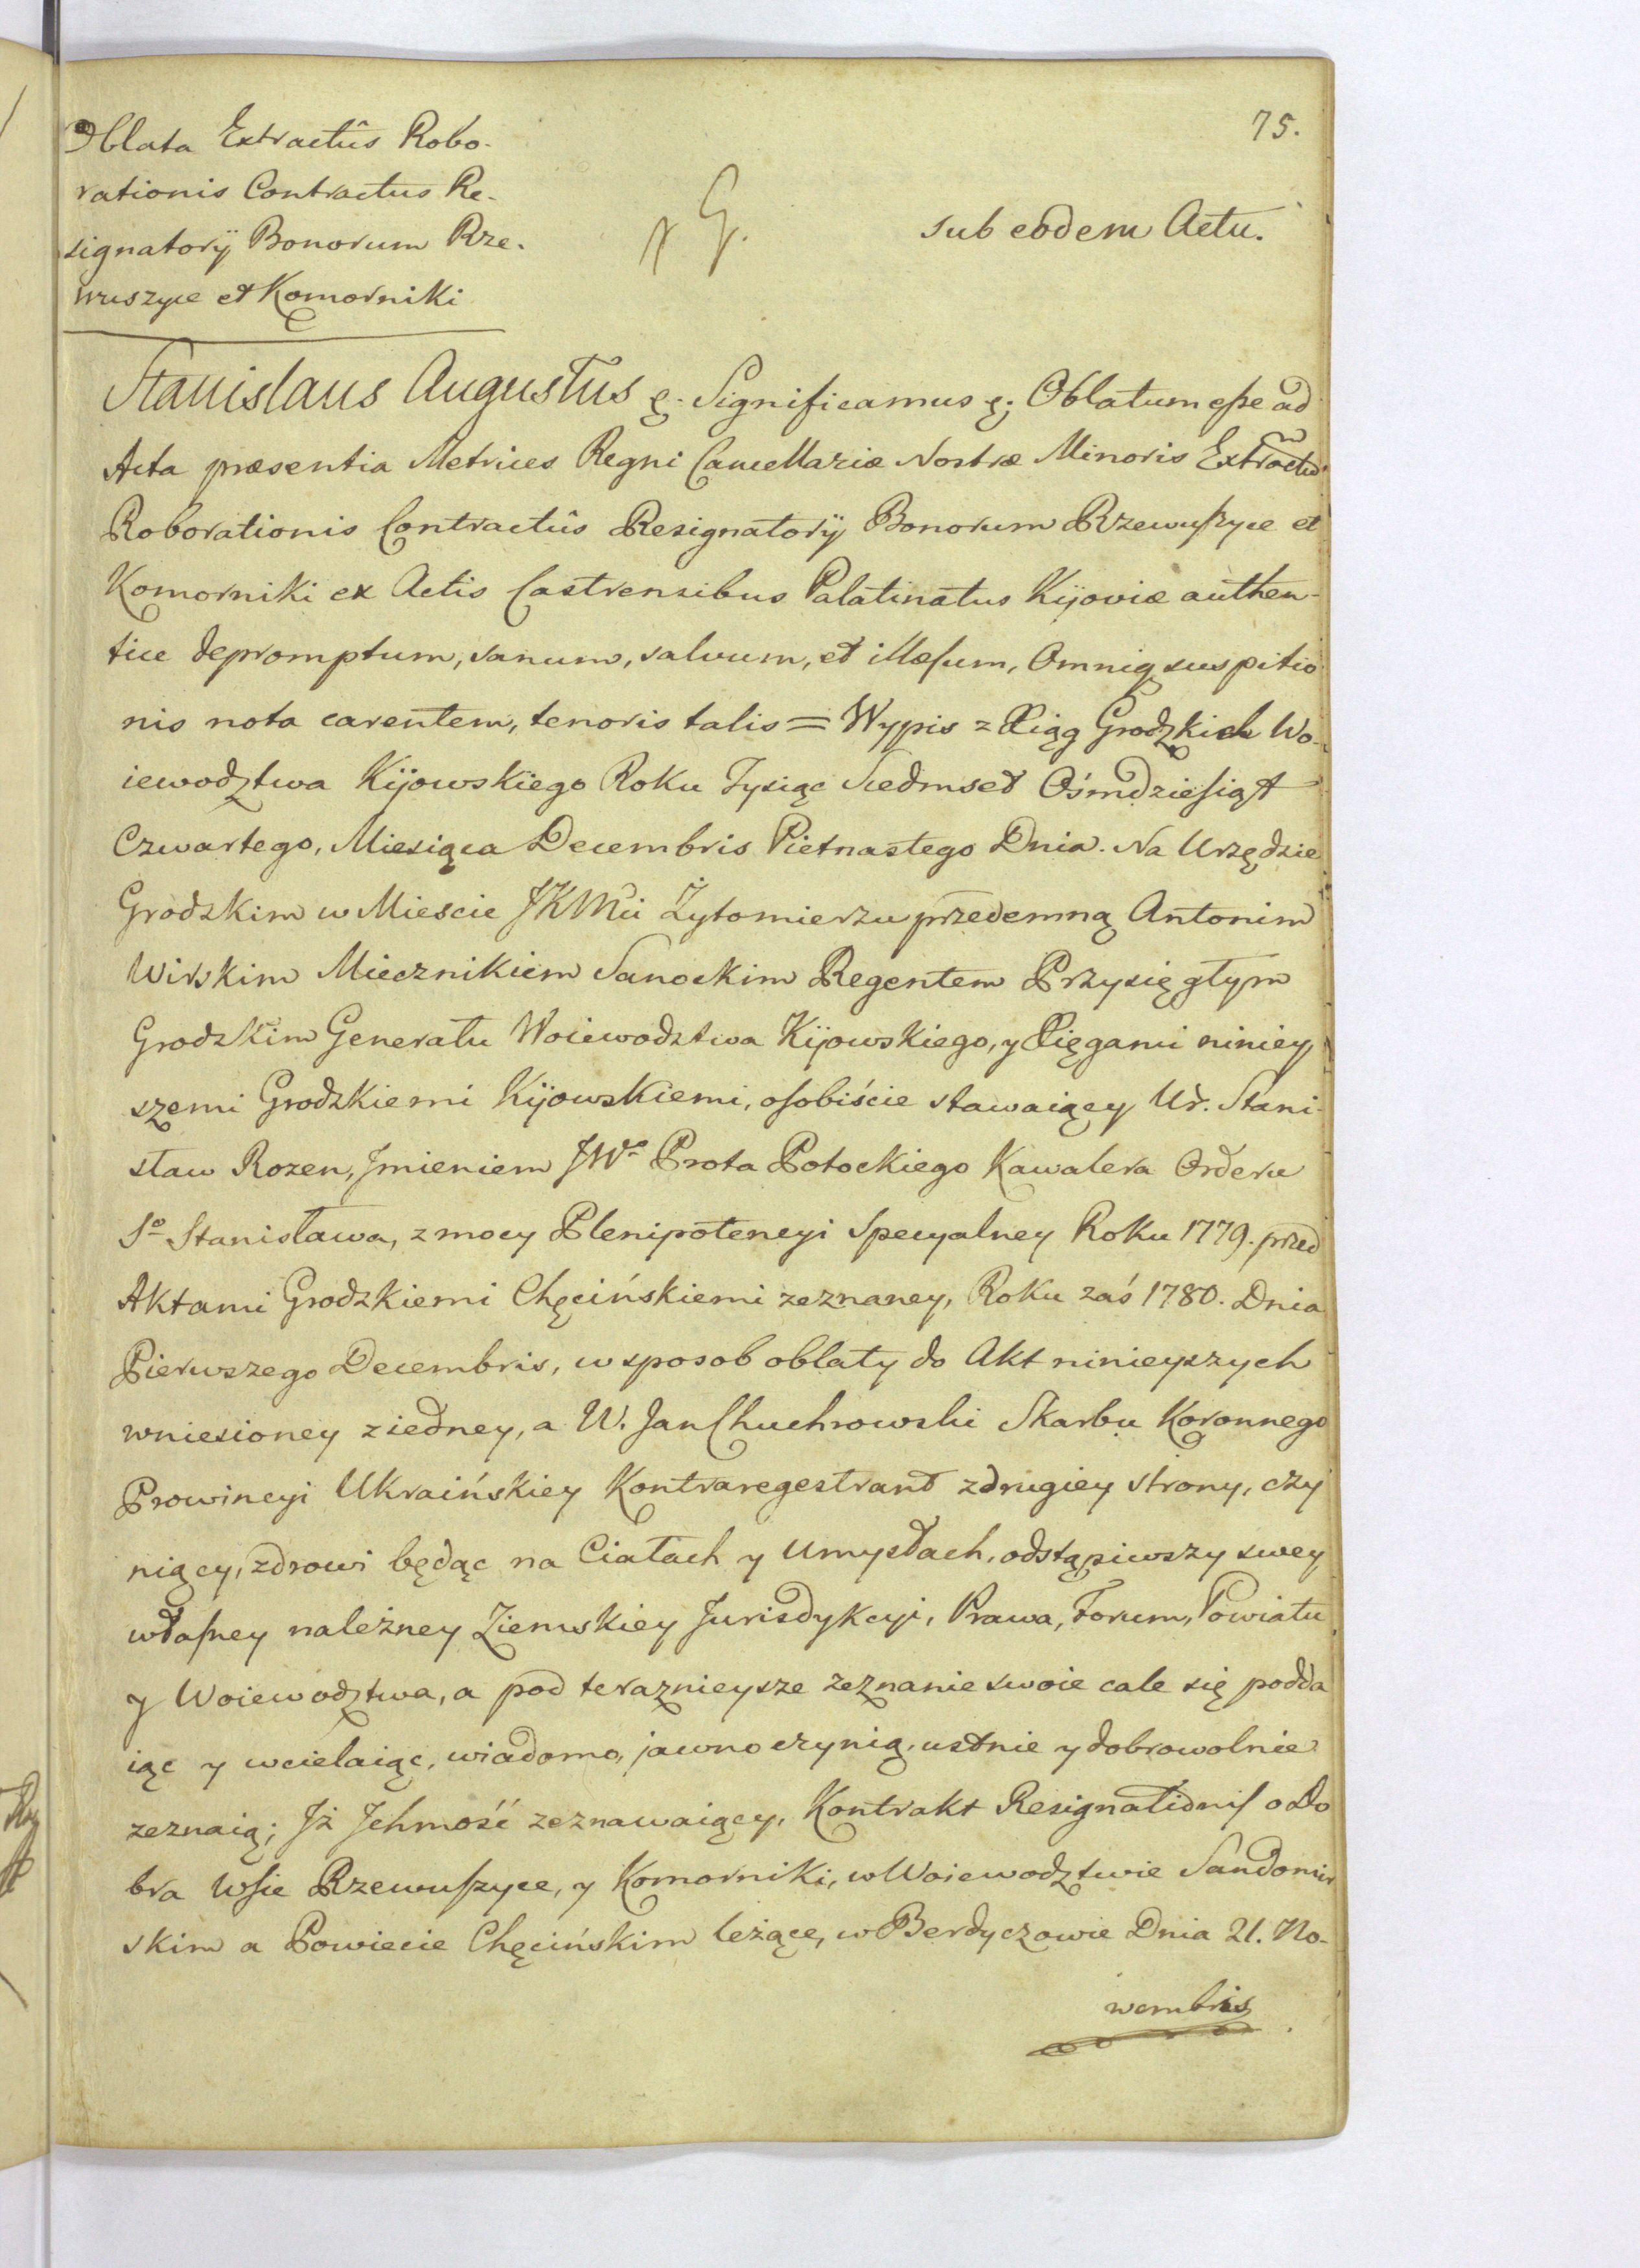 75.
Oblata Extractûs Robo-
rationis Contractus Re-
signatorÿ Bonorum Rze-
wuszyce et Komorniki
G.
sub eodem Actu.
Stanislaus Augustus &. Significamus &; Oblatum eſse ad
Acta præsentia Metrices Regni Cancellariæ Nostræ Minoris Extractũ
Roborationis Contractûs Resignatorÿ Bonorum Rzewuſzyce et
Komorniki ex Actis Castrensibus Palatinatus Kijoviæ authen-
tice depromptum, sanum, salvum, et illæſum, Omniq suspitio
nis nota carentem, tenoris talis = Wypis z Xiąg Grodzkich Wo-
iewodztwa Kijowskiego Roku Tysiąc Siedmset Ośmdzieſiąt
Czwartego, Miesiąca Decembris Pietnastego Dnia. Na Urzędzie
Grodzkim w Miescie JKMci Żytomierzu przedemną Antonim
Wirskim Miecznikiem Sanockim Regentem Przysięgłym
Grodzkim Generału Woiewodztwa Kijowskiego, y Xięgami niniey
szemi Grodzkiemi Kijowskiemi, oſobiście stawaiący Ur. Stani-
sław Rozen, Jmieniem JWo Prota Potockiego Kawalera Orderu
So Stanisława, z mocy Plenipotencyi Specyalney Roku 1779. przed
Aktami Grodzkiemi Chęcińskiemi zeznaney, Roku zaś 1780. Dnia
Pierwszego Decembris, w sposob oblaty do Akt ninieyszych
wniesioney z iedney, a W. Jan Chuchrowski Skarbu Koronnego
Prowincyi Ukraińskiey Kontraregestrant z drugiey strony, czy
niący, zdrowi będąc na Ciałach y Umysłach, odstąpiwszy swey
właſney należney Ziemskiey Jurisdykcyi, Prawa, Forum, Powiatu
y Woiewodztwa, a pod teraznieysze zeznanie swoie cale się podda
iąc y wcielaiąc, wiadomo, jawno czynią, ustnie y dobrowolnie
zeznaią; Jż Jchmość zeznawaiący, Kontrakt Resignationiſ o Do
bra Wſie Rzewuſzyce, y Komorniki, w Woiewodztwie Sandomir
skim a Powiecie Chęcińskim leżące, w Berdyczowie Dnia 21. No-
wembris